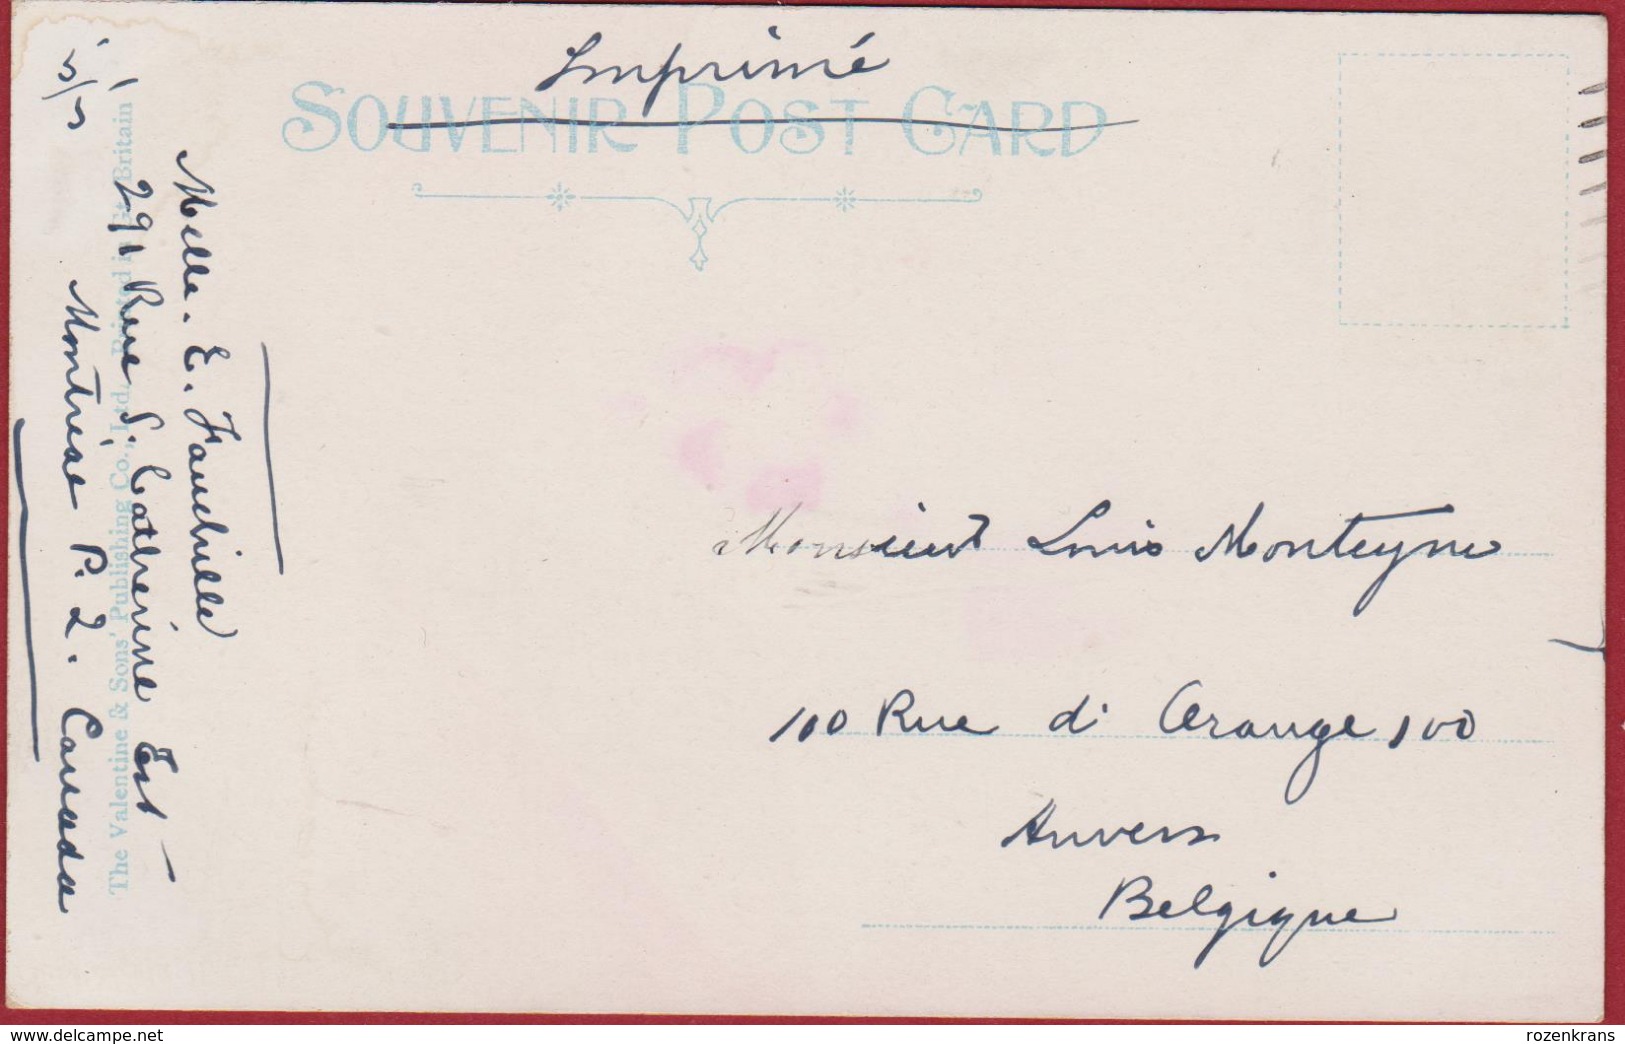 Imprimé
SOUVENIR POST CARD
Melle. E. Fauchille
291 Rue S. Catherine Est
Montréal P. 2. Canada
The Valentine & Sons' Publishing Co., Ltd. Printed in Gt. Britain
Monsieur Louis Monteyne
100 Rue d' Orange 100
Anvers
Belgique
delcampe.net
rozenkrans